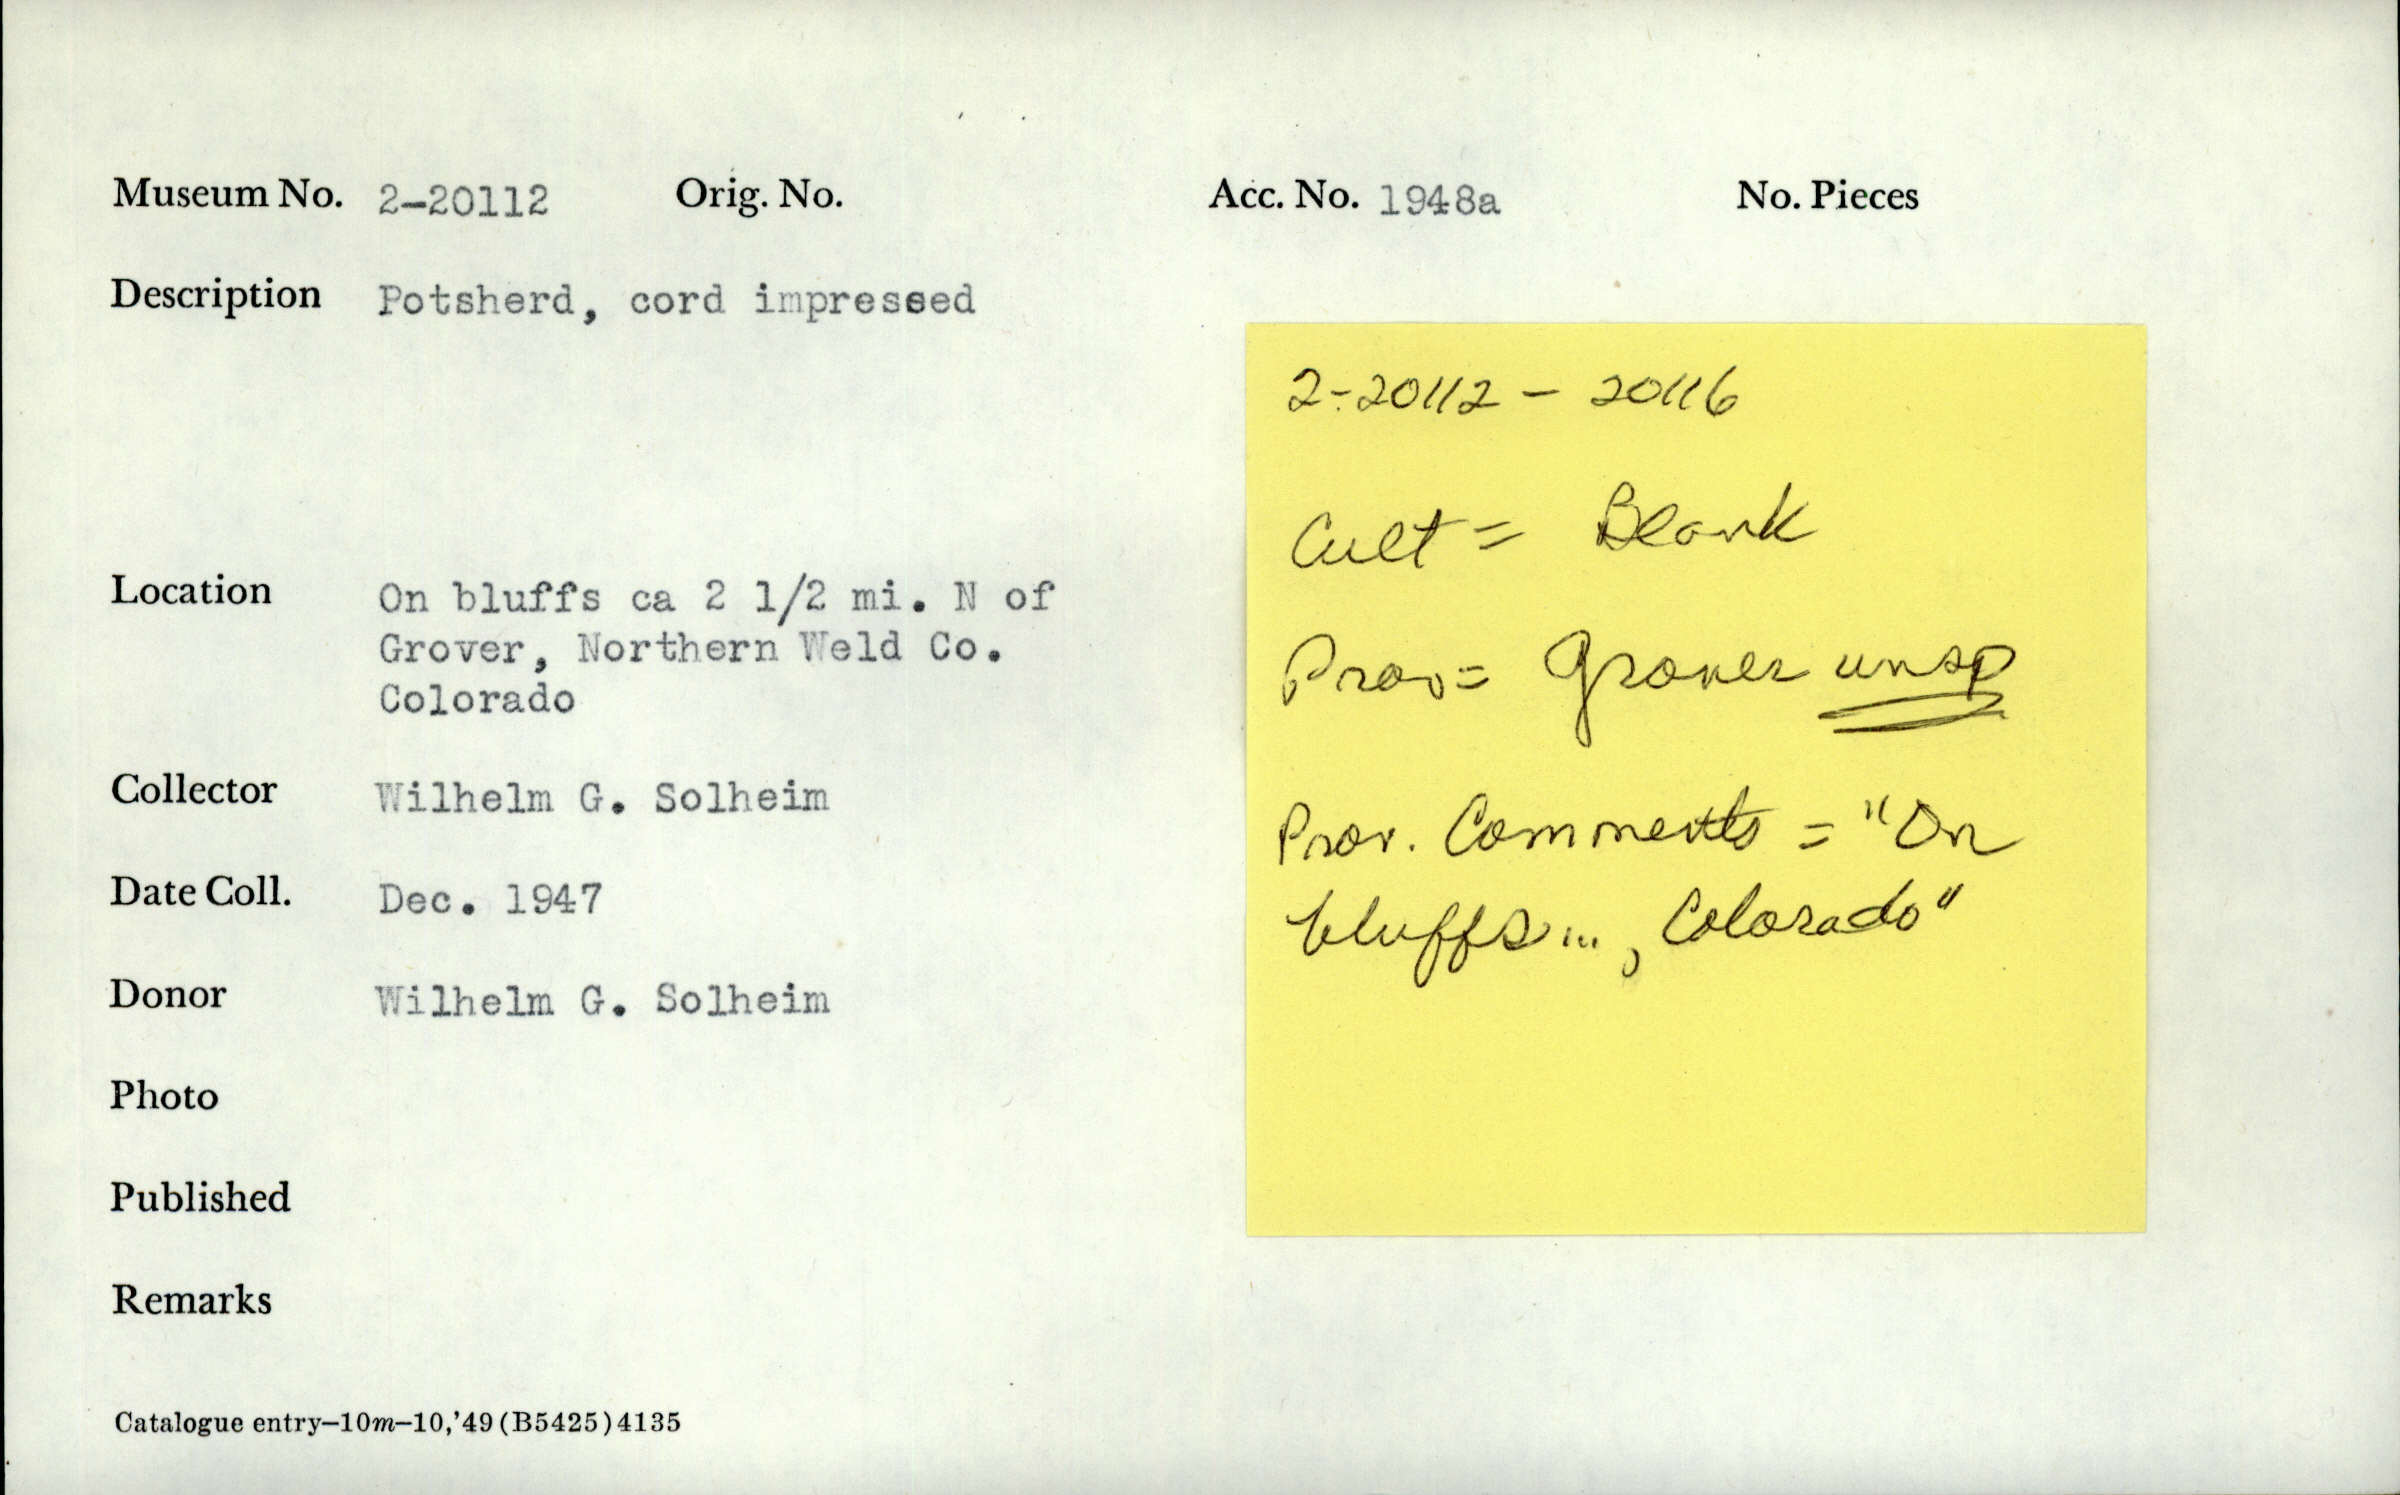 Museum No. 2-20112 Orig. No. Acc. No. 1948a No. Pieces
Description Potsherd, cord impressed
Location On bluffs ca 2 1/2 mi. N of
Grover, Northern Weld Co.
Colorado
Collector Wilhelm G. Solheim
Date Coll. Dec. 1947
Donor Wilhelm G. Solheim
Photo
Published
Remarks
Catalogue entry–10m–10,'49 (B5425) 4135
2-20112 – 20116
Cult = Blank
Prov = Grover unsp
Prov. Comments = "On
bluffs ... , Colorado"